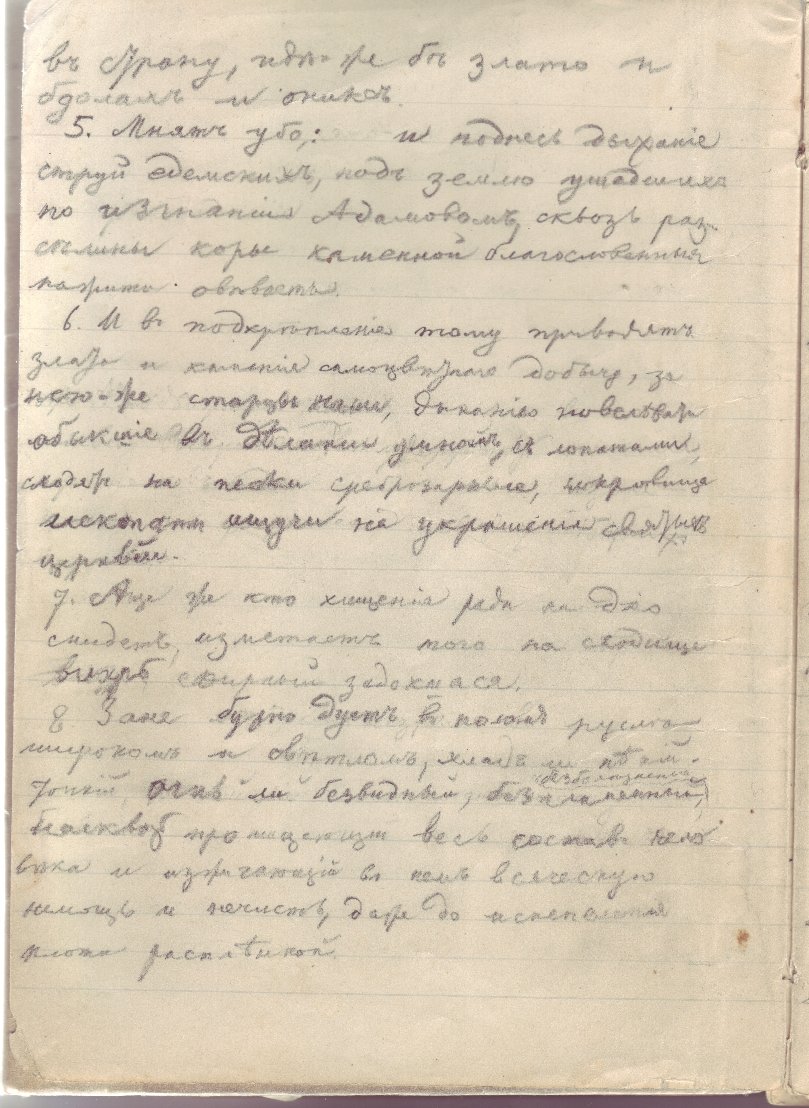 въ страну, идѣ-же бѣ злато и
бдолахъ и ониксъ.
5. Мнятъ убо,: и поднесь дыханіе
струй едемскихъ, подъ землю ушедшихъ
по изгнаніи Адамовомъ, сквозь раз-
сѣлины коры каменной благословенныя
нажити овѣваетъ.
6. И въ подкрѣпленіе тому приводятъ
злата и каменія самоцвѣтнаго добычу, за
нею-же старцы наши, дыханію повелѣвати
обыкшіе въ дѣланіи умномъ, съ лопатами,
сходятъ на пески среброзарные, сокровище
ископати ищучи на украшеніе святыхъ
церквей.
7. Аще же кто хищенія ради на дно
снидетъ, изметаетъ того на сходище
вихрь
8 Зане бурно дуетъ въ поломъ руслѣ
широкомъ и свѣтломъ, хладъ ли нѣкій
тонкій, огнь ли безвидный, безпламенный,
насквозь проницающій весь составъ чело
вѣка и изжигающій въ немъ всяческую
немощь и нечисть, даже до испепеленія
плоти растлѣнной.